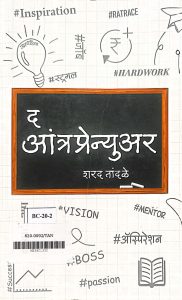 #Inspiration
#RATRACE
#जॉब
#स्ट्रगल
#HARDWORK
द
आंत्रप्रेन्युअर
शरद तांदळे
BC-20-2
#VISION
#MENTOR
#ॲस्पिरेशन
#BOSS
#Succes
#passion